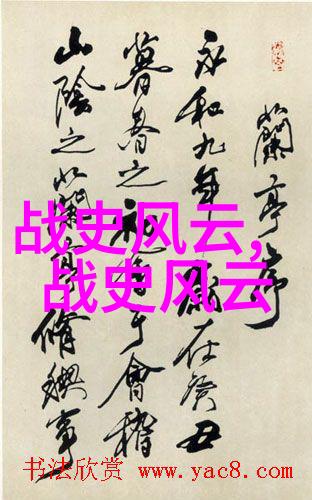 蘭亭序
永和九年歲在癸丑
暮春之初會于會稽
山陰之蘭亭脩禊事
战史风云,
战史风云
书法欣赏 www.yac8.com